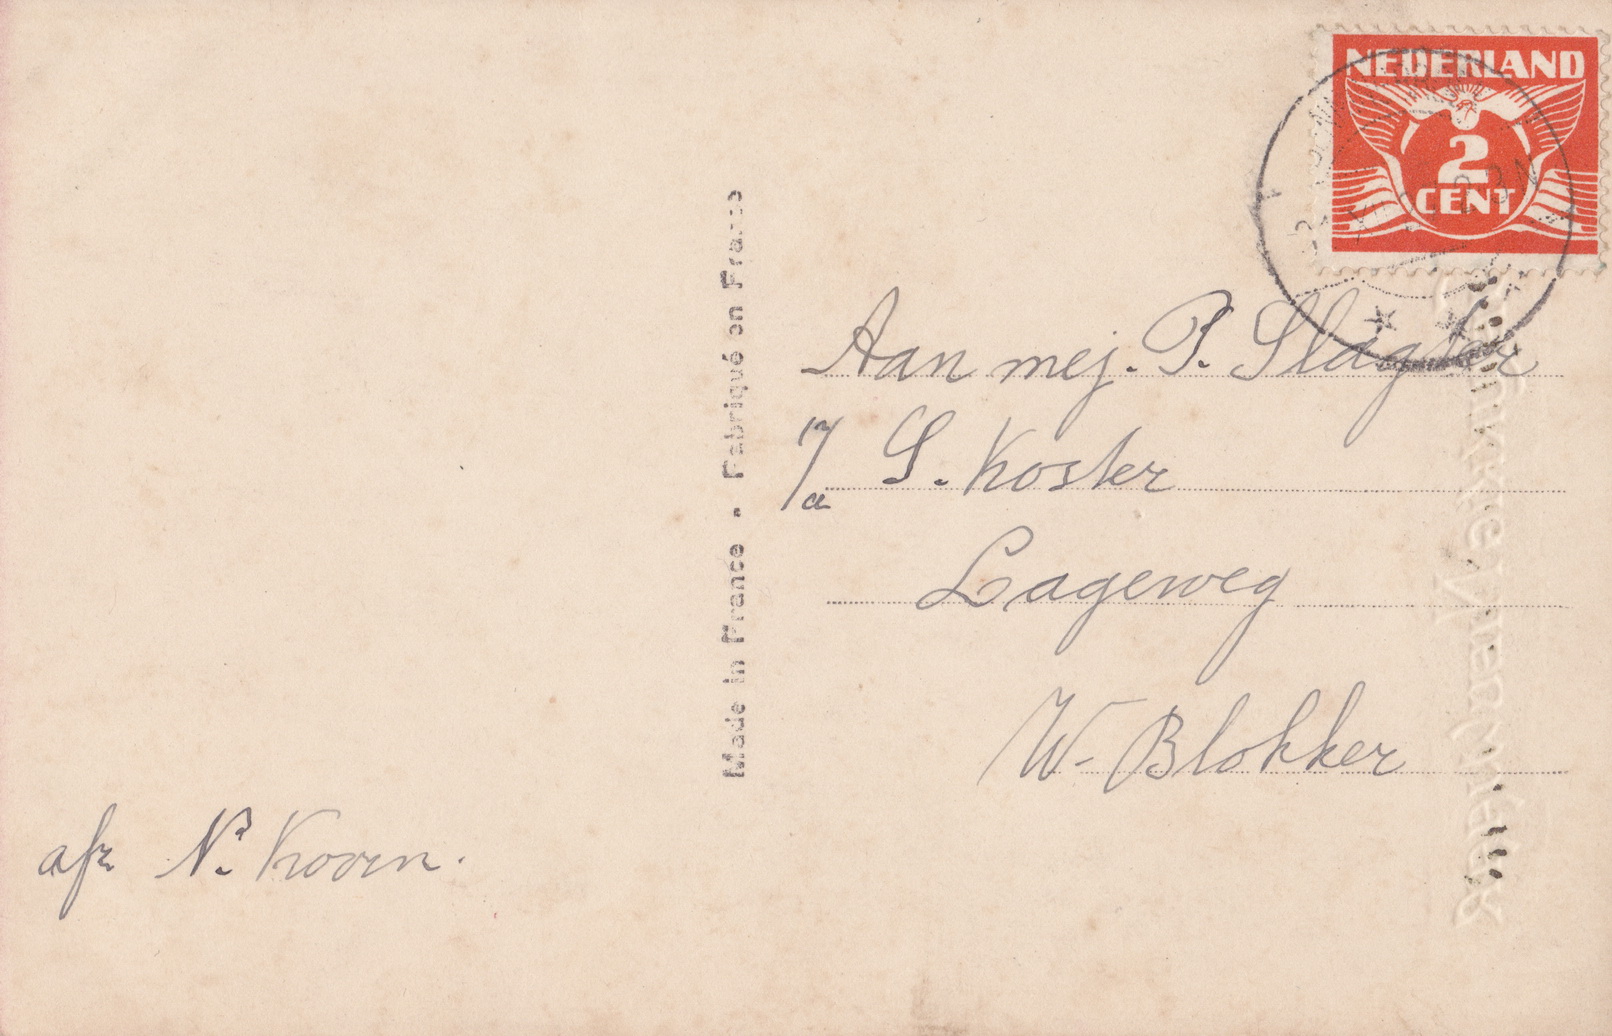 NEDERLAND
2
CENT
Aan mej. P. Slagter
p/a S. Koster
Lageweg
W- Blokker
Made in France - Fabriqué en France
afz N. Koorn.